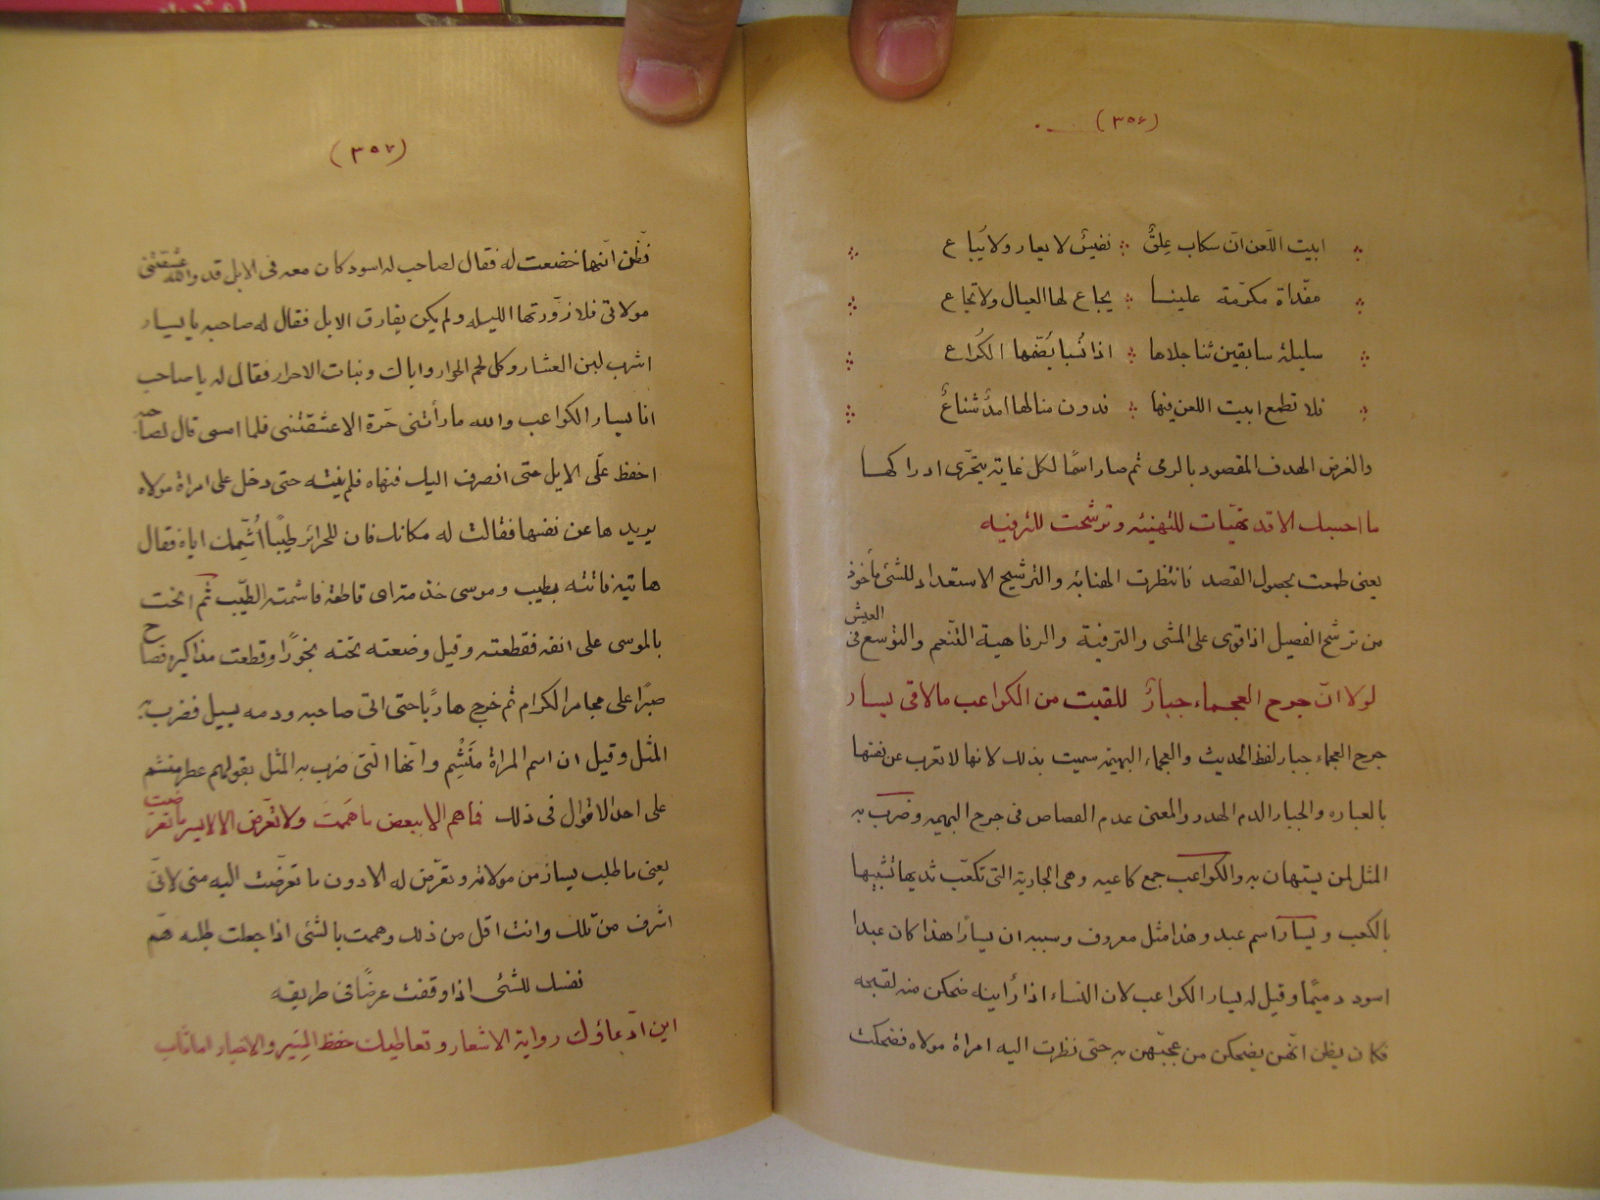 (٣٥٦)
ابيت اللّعن انّ سكاب عِلقٌ نفيسٌ لا يعار ولا يُباع
مفدّاة مكرّمة علينا يجاع لها العيال ولا تجاع
سليلة سابقين تناجلاها اذا نُسبا يُضمّها الكُراع
فلا تطمع ابيت اللعن فيها فدون منالها امدٌ شناعٌ
والغرض الهدف المقصود بالرمى ثم صار اسمًا لكل غاية يتحّرى ادراكها
ما احسبك الا قد تهيّات للتهنيه وترشّحت للترفيه
يعنى طمعت بحصول القصد فانتظرت الهنايه والترشيح الاستعداد للشئ مأخوذ
من ترشح الفصيل اذا قوى على المشى والترفية والرفاهية التّنعم والتوسع فى العيش
لولا انّ جرح العجماء جبارٌ للقيت من الكواعب ما لاقى يسار
جرح العجماء جبار لفظ الحديث والعجماء البهيمه سميت بذلك لانها لا تعرب عن نفسها
بالعباره والجبار الدم الهدر والمعنى عدم القصاص فى جرح البهيمه وضرب به
المثل لمن يستهان به والكواعب جمع كاعبه وهى الجارية التى تكعّب ثديها تشبيها
بالكعب ويسار اسم عبد وهذا مثل معروف وسببه ان يسارًا هذا كان عبدا
اسود دميمًا وقيل له يسار الكواعب لان النساء اذا رأينه ضحكن منه لقبحه
فكان يظن انهّن يضحكن من عجبهن به حتى نظرت اليه امراة مولاه فضحكت
(٣٥٧)
فظّن انّها خضعت له فقال لصاحب له اسود كان معه فى الابل قد والله عشقتنى
مولاتى فلازورّنها الليله ولم يكن يفارق الابل فقال له صاحبه يا يسار
اشرب لبن العشار وكل لحم الحوار واياك وبنات الاحرار فقال له يا صاحب
انا يسار الكواعب والله ما رأتنى حرّة الا عشقتنى فلما امسى قال لصاحبه
احفظ علّى الابل حتى انصرف اليك فنهاه فلم ينته حتى دخل على امراة مولاه
يريدها عن نفسها فقالت له مكانك فان للحرائر طيبًا أُشِمُّك اياه فقال
هاتيه فاتته بطيب وموسى قاطعة فاشمته الطّيب ثم انحت
بالموسى على انفه فقطعته وقيل وضعت تحته بخورًا وقطعت مذاكيره فصاح
صبرًا على مجامر الكرام ثم خرج هاربًا حتى اتى صاحبه ودمه يسيل فضرب به
المثل وقيل ان اسم المراة مَنْشِم وانّها الّتى ضرب به المثل بقولهم عطر منشم
على احد الاقوال فى ذلك فما همّ الا ببعض ما هَممتَ ولا تعرّض الا لايسر ما تعرضت
يعنى ما طلب يسار من مولاته وتعرّض له الا دون ما تعرّضت اليه منى لانّى
اشرف من تلك وانت اقل من ذلك وهممت بالشئ اذا جعلت طلبه همّ
نفسك للشئ اذا وقفت عرضًا فى طريقه
اين ادّعاؤك رواية الاشعار وتعاطيك حفظ السِيَر والاخبار اما ثاب